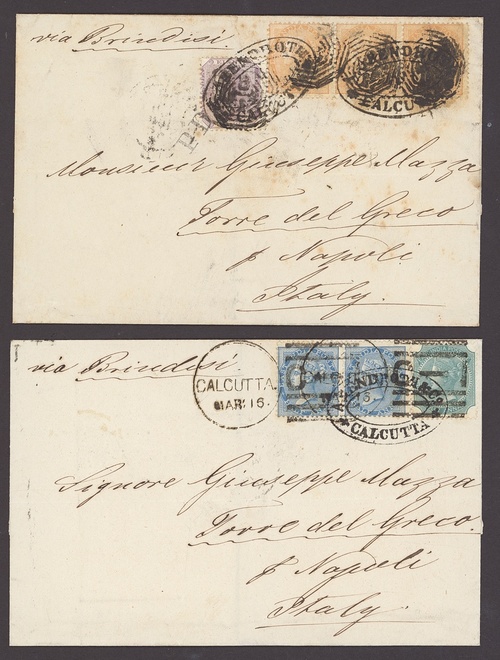 via Brindisi
CALCU
Monsieur Giuseppe Mazza
Torre del Greco
p Napoli
Italy.
via Brindisi
CALCUTTA
MAR 16
CALCUTTA
Signore Giuseppe Mazza
Torre del Greco.
p Napoli
Italy.